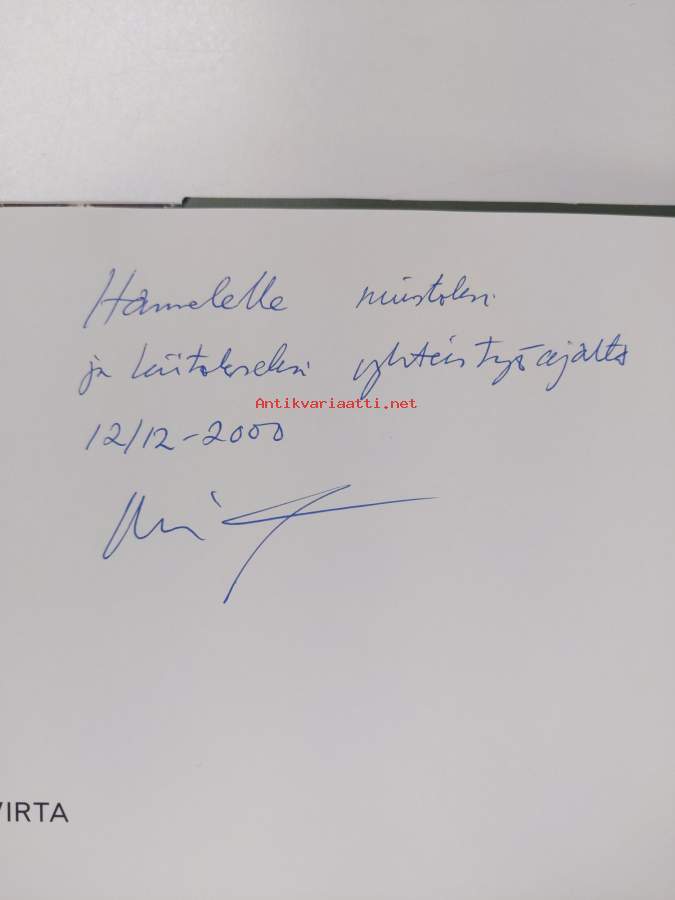 Hannelelle muistoksi
ja kiitokseksi yhteistyöajalta
Antikvariaatti.net
12/12-2000
VIRTA